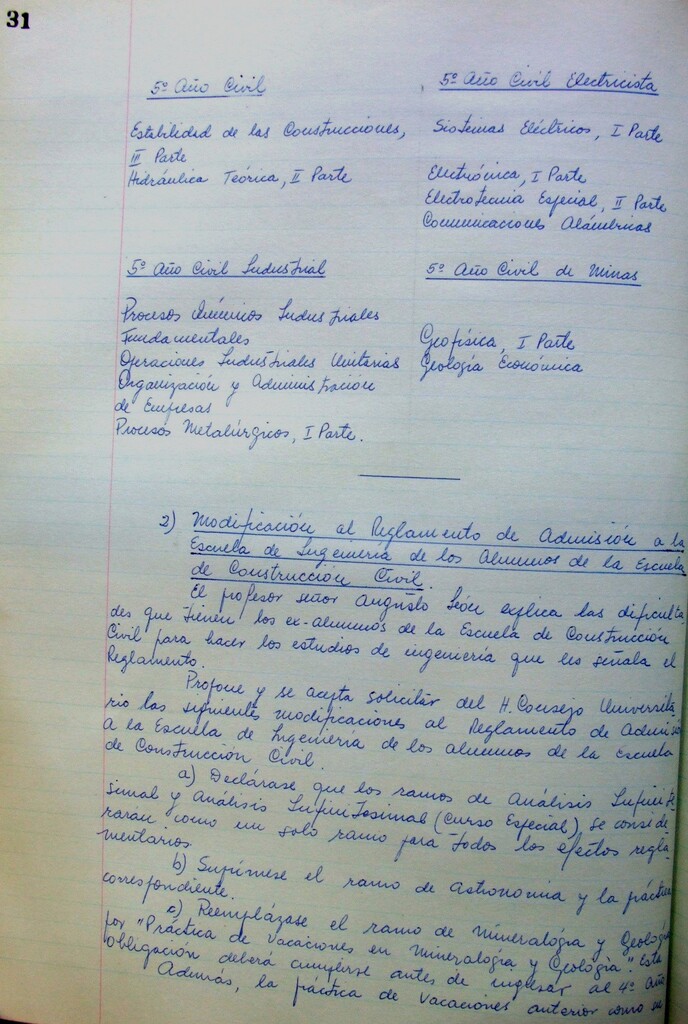 31
5º Año Civil
Estabilidad de las Construcciones,
III Parte
Hidráulica Teórica, II Parte
5º Año Civil Electricista
Sistemas Eléctricos, I Parte
Electrónica, I Parte
Electrotecnia Especial, II Parte
Comunicaciones Alámbricas
5º Año Civil Industrial
Procesos Químicos Industriales
Fundamentales
Operaciones Industriales Unitarias
Organización y Administración
de Empresas
Procesos Metalúrgicos, I Parte.
5º Año Civil de Minas
Geofísica, I Parte
Geología Económica
2) Modificación al Reglamento de Admisión a la
Escuela de Ingeniería de los Alumnos de la Escuela
de Construcción Civil.
El profesor señor Augusto León explica las dificulta
des que tienen los ex-alumnos de la Escuela de Construcción
Civil para hacer los estudios de ingeniería que les señala el
Reglamento.
Propone y se acepta solicitar del H. Consejo Universita
rio las siguientes modificaciones al Reglamento de Admisión
a la Escuela de Ingeniería de los alumnos de la Escuela
de Construcción Civil.
a) Declárase que los ramos de Análisis Infinite
simal y Análisis Infinitesimal (Curso Especial) se conside
rarán como un solo ramo para todos los efectos regla-
mentarios.
b) Suprímese el ramo de Astronomía y la práctica
correspondiente.
c) Reemplázase el ramo de Mineralogía y Geología
por "Práctica de Vacaciones en Mineralogía y Geología". Esta
obligación deberá cumplirse antes de ingresar al 4º Año.
Además, la práctica de Vacaciones anterior como su